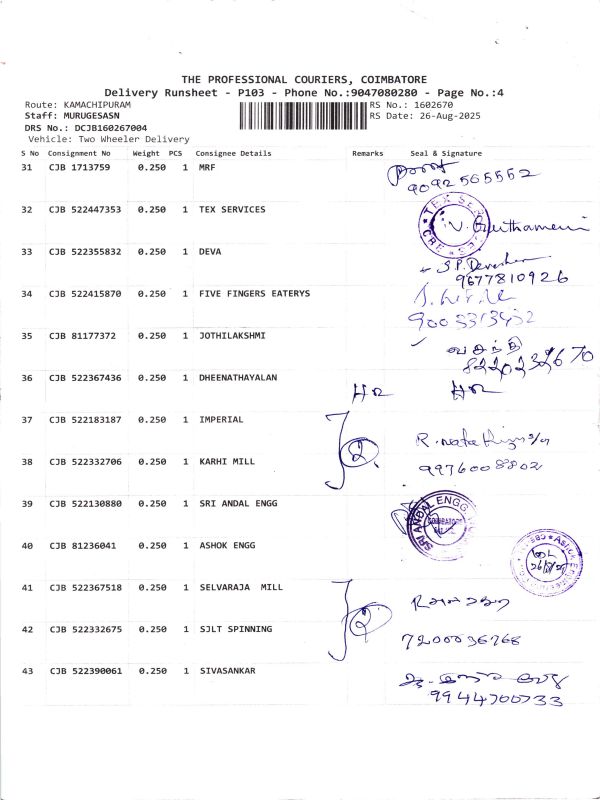 THE PROFESSIONAL COURIERS, COIMBATORE
Delivery Runsheet - P103 - Phone No.:9047080280 - Page No.:4
Route: KAMACHIPURAM RS No.: 1602670
Staff: MURUGESASN RS Date: 26-Aug-2025
DRS No.: DCJB160267004
Vehicle: Two Wheeler Delivery
S No Consignment No Weight PCS Consignee Details Remarks Seal & Signature
31 CJB 1713759 0.250 1 MRF
9092565552
32 CJB 522447353 0.250 1 TEX SERVICES
33 CJB 522355832 0.250 1 DEVA
9677810926
34 CJB 522415870 0.250 1 FIVE FINGERS EATERYS
35 CJB 81177372 0.250 1 JOTHILAKSHMI
வசந்தி
36 CJB 522367436 0.250 1 DHEENATHAYALAN
37 CJB 522183187 0.250 1 IMPERIAL
38 CJB 522332706 0.250 1 KARHI MILL
9976008802
39 CJB 522130880 0.250 1 SRI ANDAL ENGG
SRI ANDAL ENGG
40 CJB 81236041 0.250 1 ASHOK ENGG
41 CJB 522367518 0.250 1 SELVARAJA MILL
42 CJB 522332675 0.250 1 SJLT SPINNING
7200036768
43 CJB 522390061 0.250 1 SIVASANKAR
9944700733